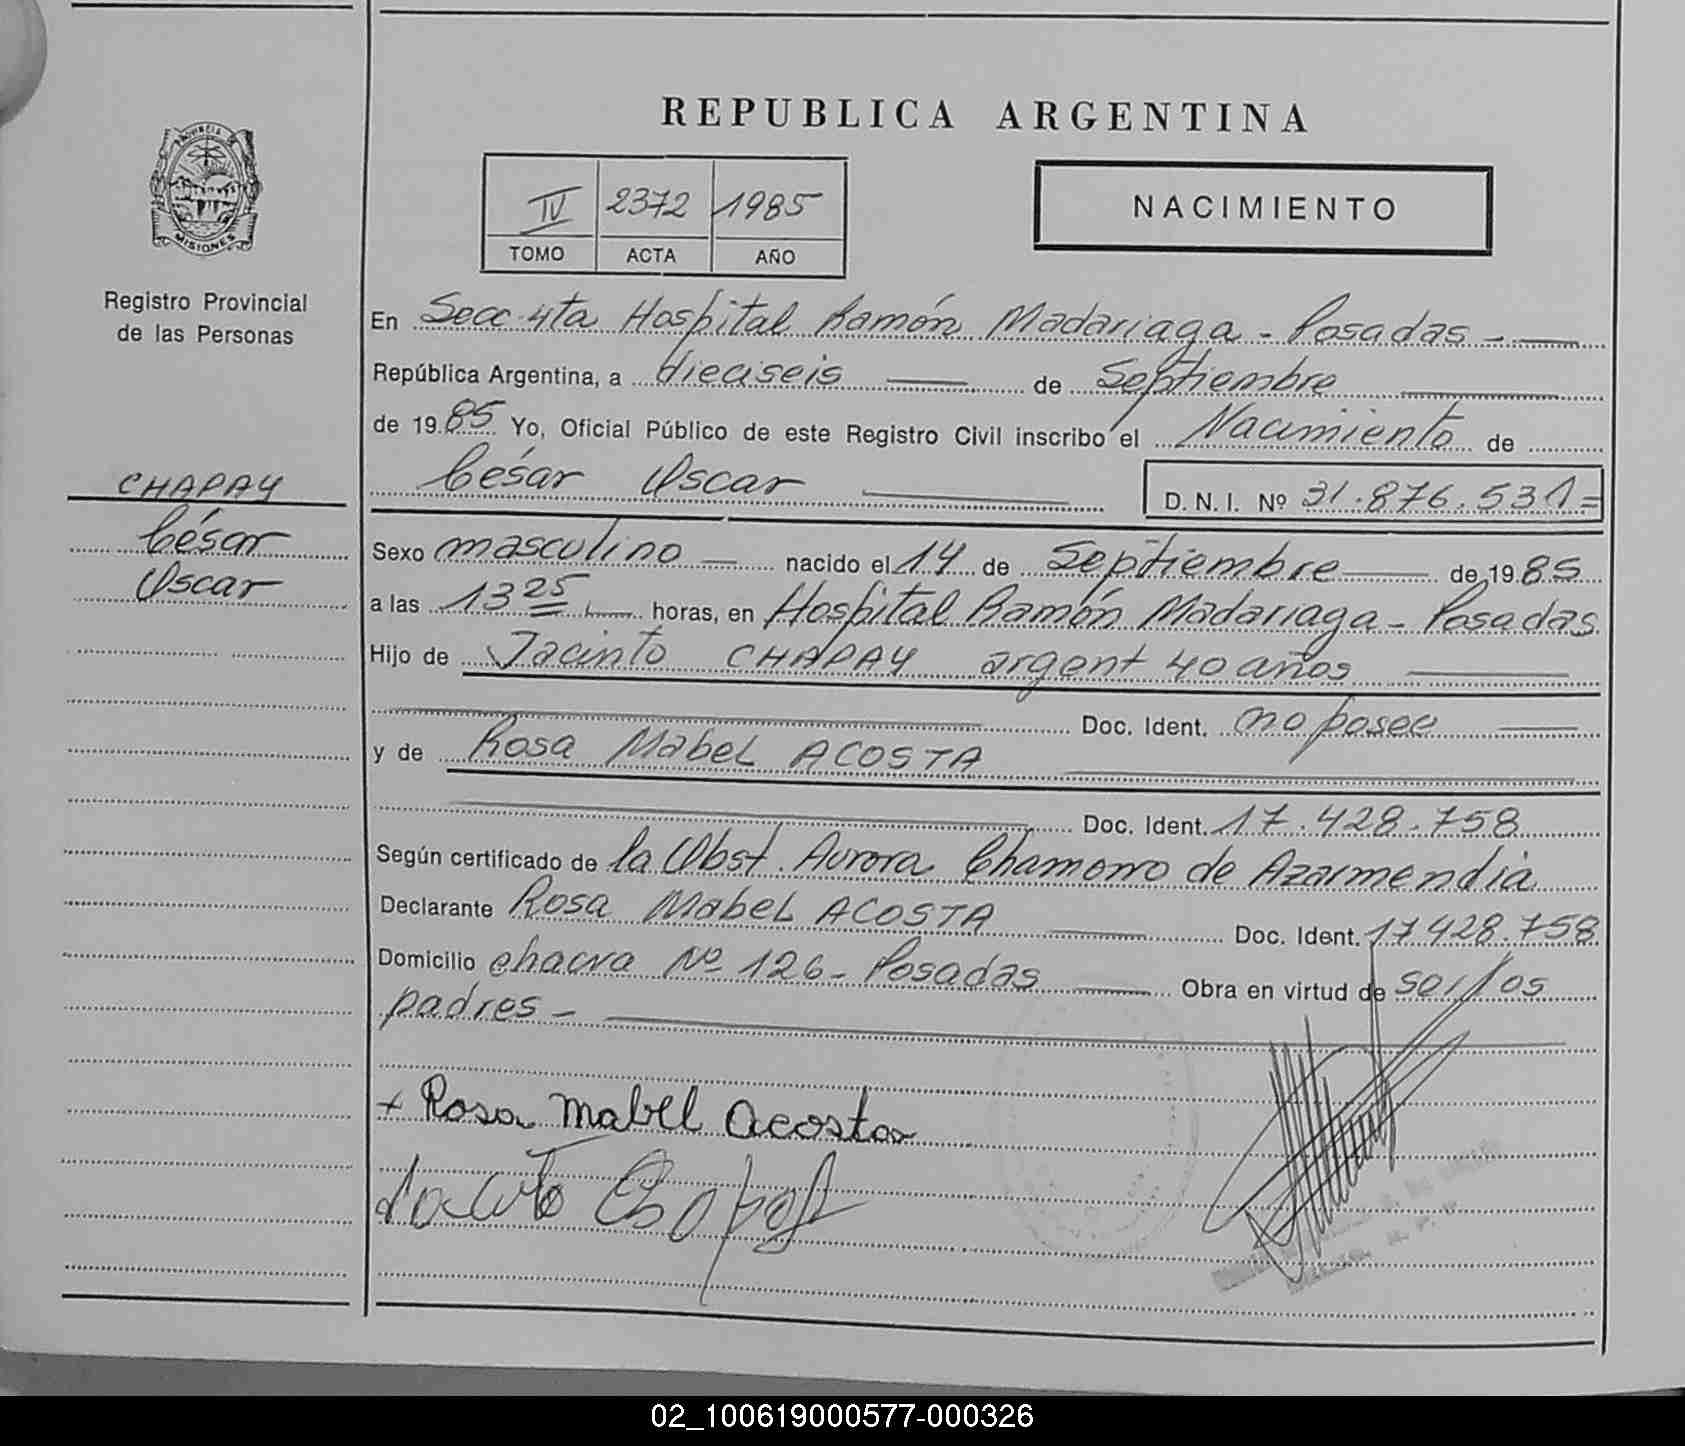 REPUBLICA ARGENTINA
PROVINCIA DE
MISIONES
Registro Provincial
de las Personas
IV 2372 1985
TOMO ACTA AÑO
NACIMIENTO
En Secc 4ta Hospital Ramón Madariaga - Posadas -
República Argentina, a dieciseis de Septiembre
de 1985 Yo, Oficial Público de este Registro Civil inscribo el Nacimiento de
César Oscar D. N. I. Nº 31.876.531=
CHAPAY
César
Oscar
Sexo masculino nacido el 14 de Septiembre de 1985
a las 13 25 horas, en Hospital Ramón Madariaga - Posadas
Hijo de Jacinto CHAPAY argent 40 años
Doc. Ident. no posee
y de Rosa Mabel ACOSTA
Doc. Ident. 17.428.758
Según certificado de la Obst. Aurora Chamorro de Azarmendia
Declarante Rosa Mabel ACOSTA Doc. Ident. 17428.758
Domicilio chacra Nº 126- Posadas Obra en virtud de ser los
padres -
+ Rosa Mabel Acosta
Jacinto Chapay
02_100619000577-000326